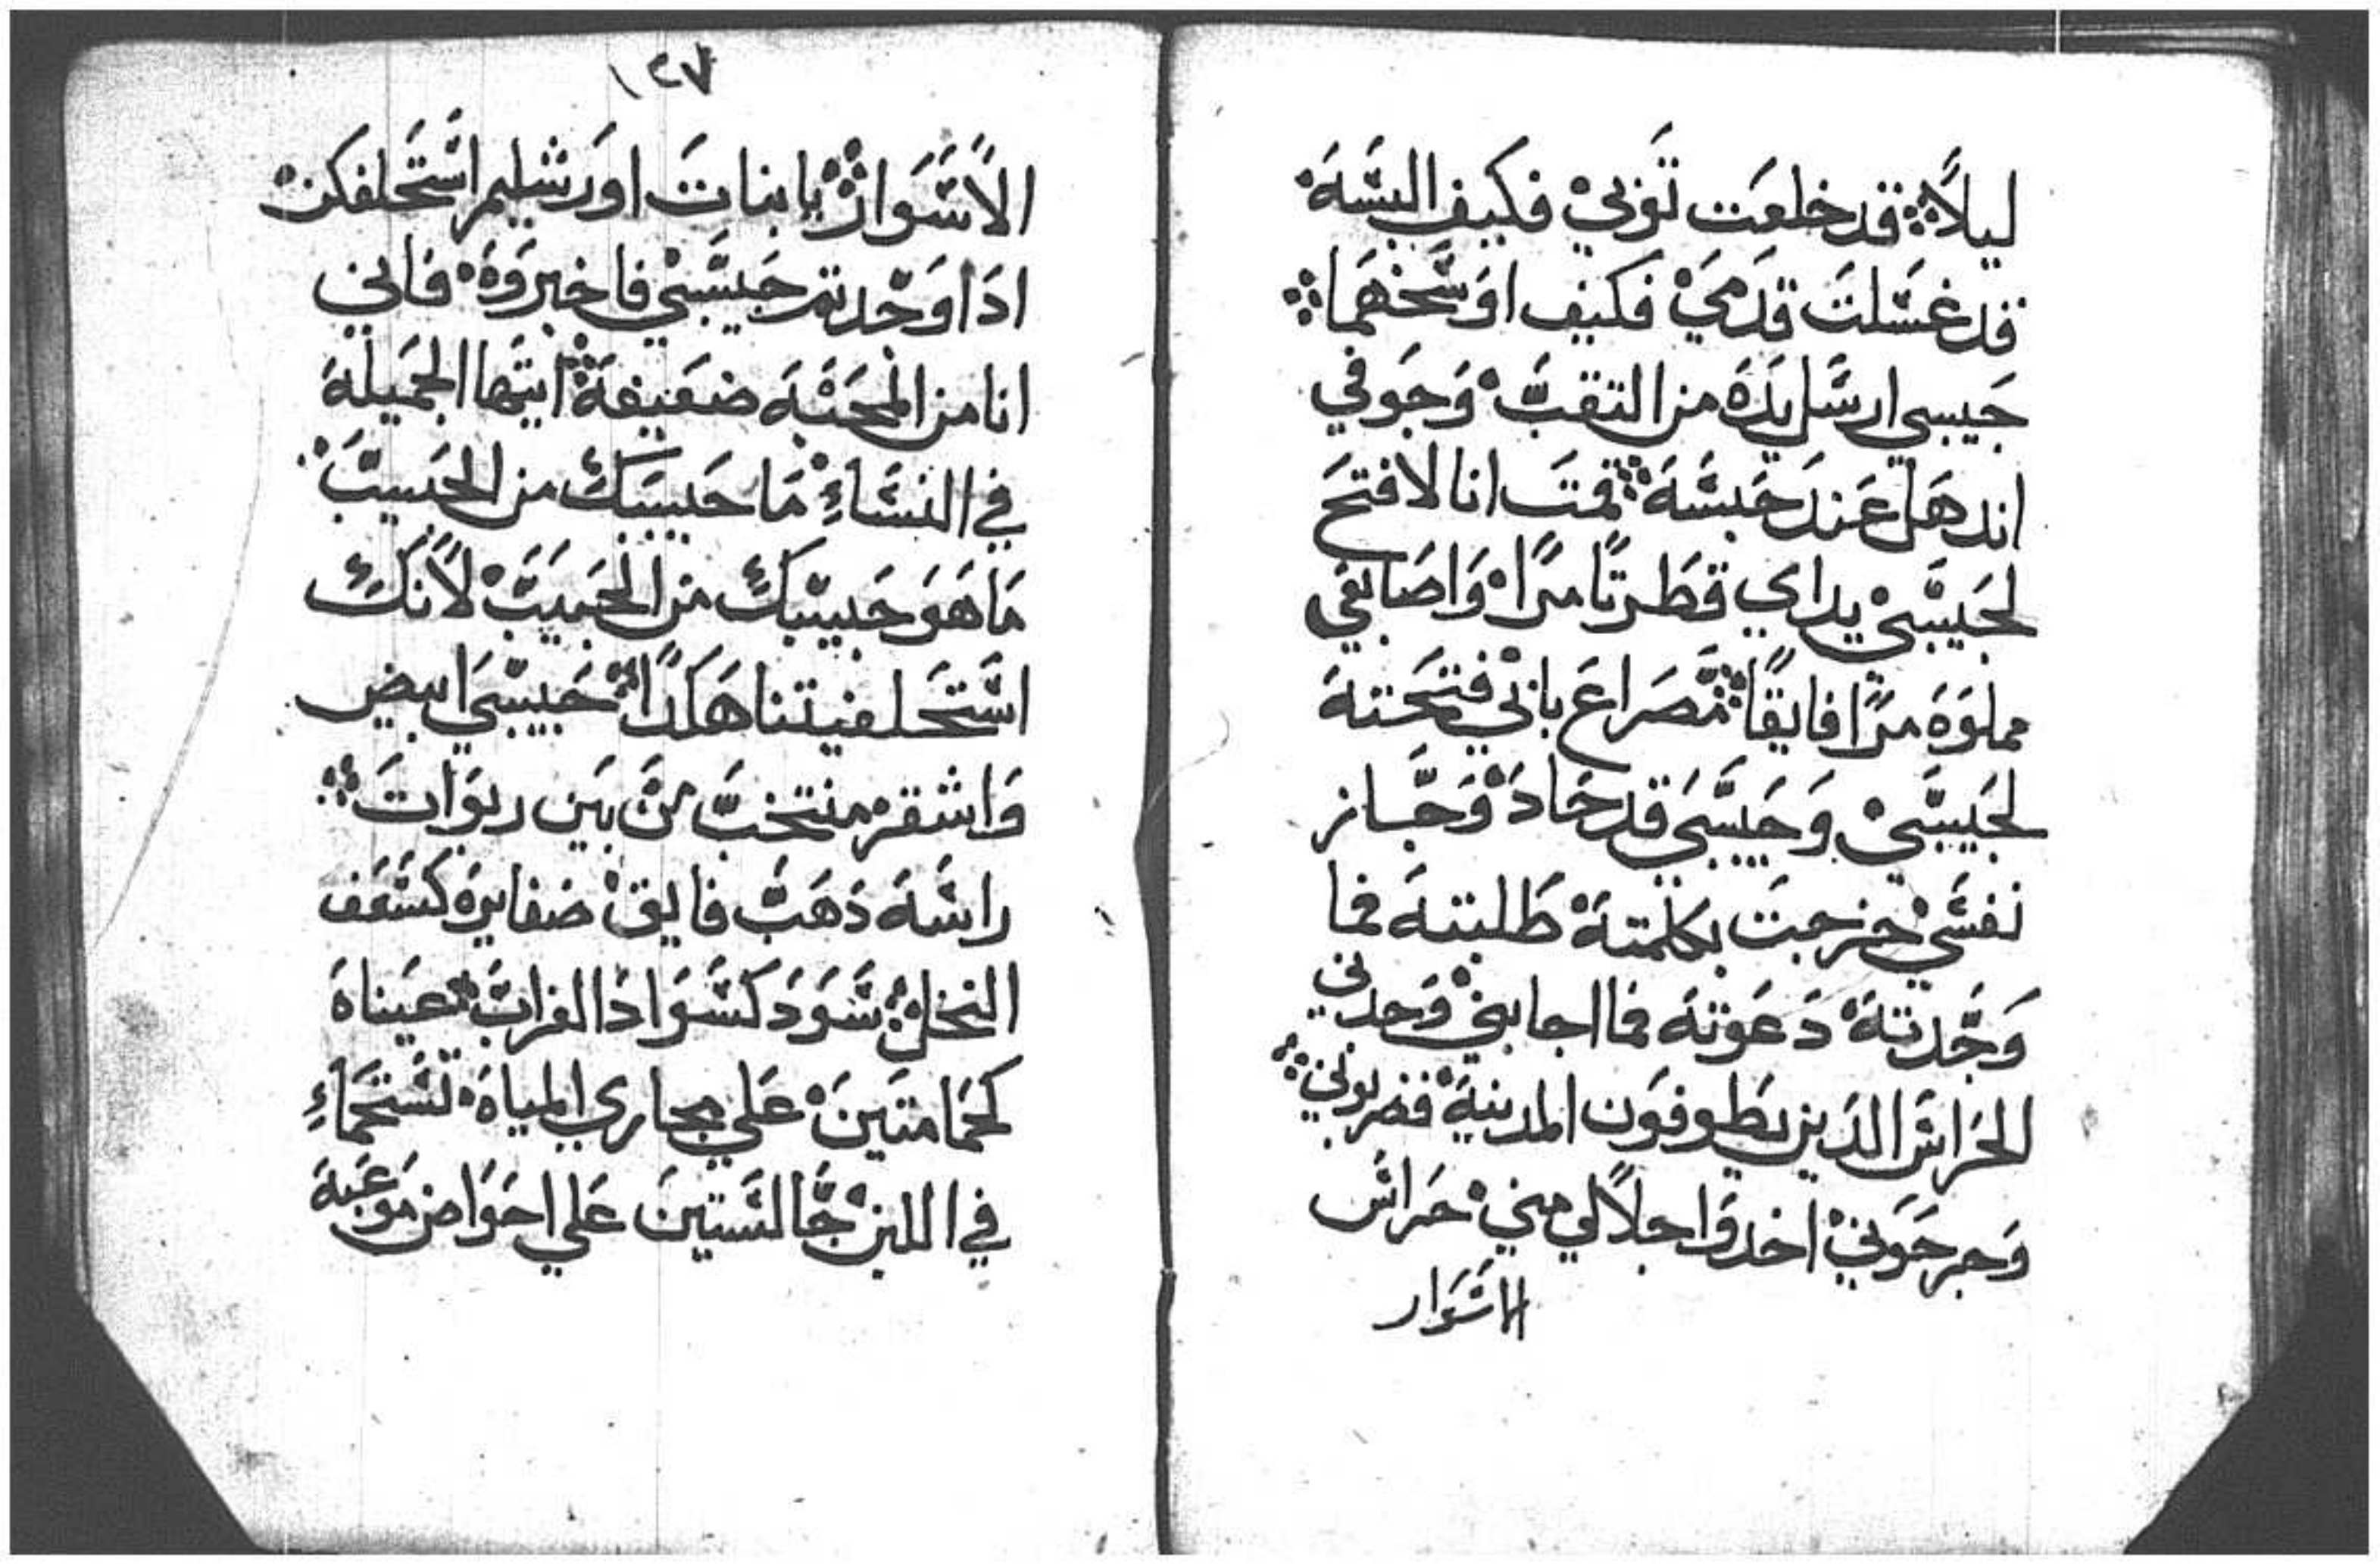 ليلاً قد خلعت توبي فكيف البسه
قد غسلت قدمي فكيف اوسخهما
حبيبي ارسل يده من التقب وجوفي
اندهل عند حبسه قمت انا لافتح
لحبيبي يداي قطرتا مرا واصابعي
مملوه مرًا فايقًا مصراع باني فتحته
لحبيبي وحبيبي قد حاد وجاز
نفسي خرجت بكلمته طلبته فما
وجدته دعوته فما اجابني وجدني
الحراس الدين يطوفون المدينة فضربوني
وجرحوني اخدوا جلالي مني حراس
الاسوار
١٤٧
الاسوار يا بنات اورشليم استحلفكن
ادا وجدتم حبيبي فاخبروه فاني
انا من المحبه ضعيفة ايتها الجميله
في النساءِ ما حبيبك من الحبيب
ما هو حبيبك من الحبيب لانك
استحلفيتنا هكدا حبيبي ابيض
واشقر منتخب من بين ربوات
راسه دهب فايق ضفايره كسعف
النخل سود كسواد الغراب عيناه
كحمامتين على مجاري المياه تستحماءِ
في اللبن جالستين على احواض موعبه